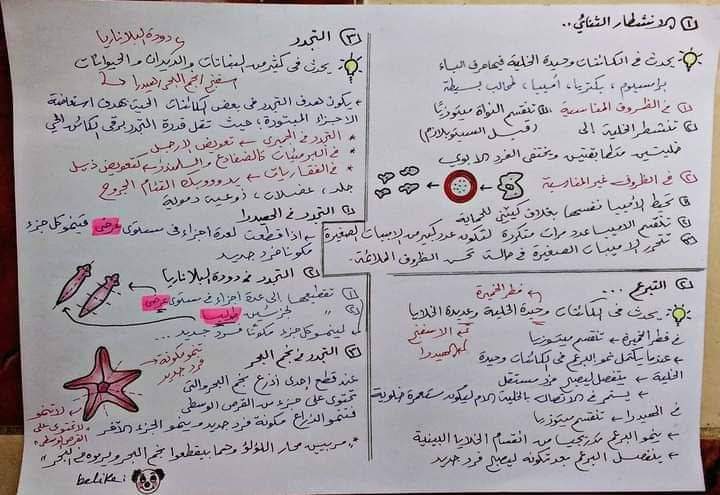 ① الانشطار الثنائي..
يحدث في الكائنات وحيدة الخلية فيما هي البناء
براميسيوم، بكتريا، أميبا، طحالب بسيطة
① في الظروف المناسبة ① تنقسم النواة ميتوزيًا
② تنشطر الخلية إلى (قبل السيتوبلازم)
خليتين متطابقتين ويختفي الفرد الأبوي
② في الظروف غير المناسبة
① تحيط الأميبا نفسها بغلاف كيتيني للحماية
② تنقسم الأميبا عدة مرات متكررة لتكون عدد كبير من الأميبات الصغيرة
③ تتحرر الأميبات الصغيرة في حالة تحسن الظروف الملائمة.
② التبرعم ...
فطر الخميرة
يحدث في الكائنات وحيدة الخلية وعديدة الخلايا
الاسفنج
الهيدرا
في فطر الخميرة ← تنقسم ميتوزيًا
← عندما يكتمل نمو البرعم في الكائنات وحيدة
الخلية ← ينفصل ليصبح فرد مستقل
← يستمر في الاتصال بالخلية الأم ليكون مستعمرة خلوية
في الهيدرا ← تنقسم ميتوزيًا
← ينمو البرعم تدريجيًا من انقسام الخلايا البينية
← ينفصل البرعم بعد تكونه ليصبح فرد جديد
③ التجدد
دودة البلاناريا
يحدث في كثير من النباتات والديدان والحيوانات
اسفنج نجم البحر الهيدرا
← يكون هدف التجدد في بعض الكائنات الحية بهدف استعاضة
الأجزاء المبتورة، حيث تقل قدرة التجدد برقي الكائن الحي
* التجدد في الجمبري ← تعويض الأرجل
* في البرمائيات كالضفادع والسلمندر ← لتعويض ذيل
* في الفقاريات ← التئام الجروح
جلد، عضلات، أوعية دموية
① التجدد في الهيدرا
← إذا قطعت لعدة أجزاء في مستوى عرضي فينمو كل جزء
مكونًا فرد جديد
② التجدد في دودة البلاناريا
① تقطيعها إلى عدة أجزاء في مستوى عرضي
② " لجزئين طوليًا
← لينمو كل جزء مكونًا فرد جديد...
③ التجدد في نجم البحر
عند قطع إحدى أذرع نجم البحر والتي
تحتوي على جزء من القرص الوسطي
فتنمو الذراع مكونة فرد جديد وينمو الجزء الآخر
تنمو مكونة
فرد جديد
لا تنمو
لا تحتوي على
القرص الوسطي
* مربيين محار اللؤلؤ وهما بيقطعوا نجم البحر ويرموه في البحر"
belike: